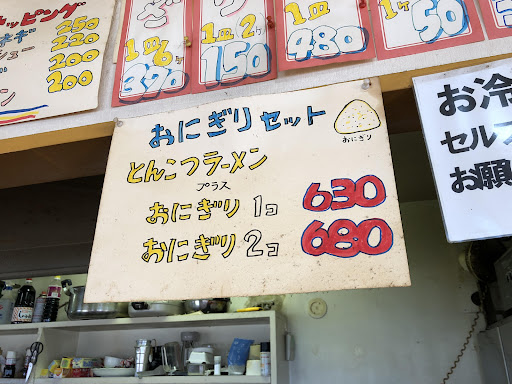 ッピング
ネギ 250
シュー 220
200
ン 200
1皿6ケ
370
1皿2ケ
150
1皿
480
1ケ
50
おにぎりセット
おにぎり
とんこつラーメン
プラス
おにぎり1コ 630
おにぎり2コ 680
お冷
セルフ
お願